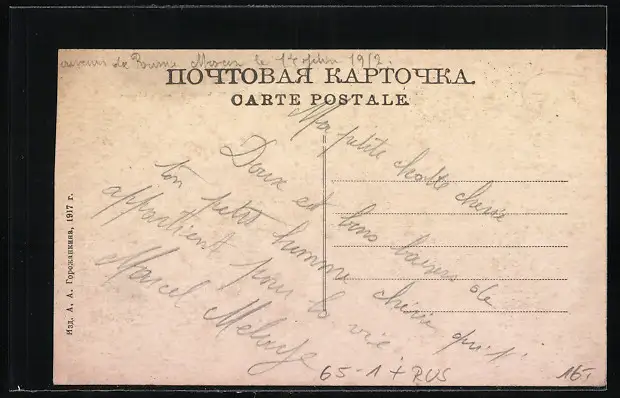 souvenir de Roumanie le 1917.
ПОЧТОВАЯ КАРТОЧКА.
CARTE POSTALE
Ma petite chatte chérie
Doux et bons baisers de
ton petit homme chéri qui t'
appartient pour la vie
Marcel
Изд. А. А. Горожанкина, 1917 г.
65-1 + RUS
16,-